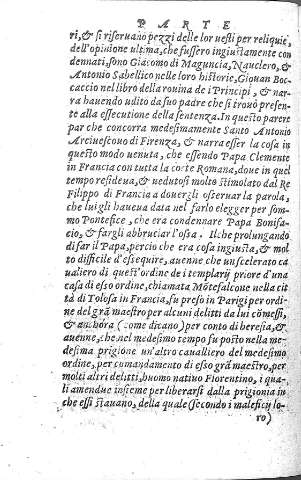 PARTE
ri, & si riseruano pezzi delle lor uesti per reliquie,
dell'opinione ultima, che fussero ingiustamente con
dennati, sono Giacomo di Maguncia, Nauclero, &
Antonio Sabellico nelle loro historie, Giouan Boc-
caccio nel libro della rouina de i Principi, & nar-
ra hauendo udito da suo padre che si trouò presen-
te alla essecutione della sentenza. In questo parere
par che concorra medesimamente Santo Antonio
Arciuescouo di Firenza, & narra esser la cosa in
questo modo uenuta, che essendo Papa Clemente
in Francia con tutta la corte Romana, doue in quel
tempo residea, & uedutosi molto stimolato dal Re
Filippo di Francia a douergli osseruar la parola,
che luigli haueua data nel farlo elegger per som-
mo Pontefice, che era condennare Papa Bonifa-
cio, & fargli abbruciar l'ossa. Il che prolungando
di far il Papa, percio che era cosa ingiusta, & mol
to difficile d'essequire, auenne che un scelerato ca
ualiero di quest'ordine de i templarij priore d'una
casa di esso ordine, chiamata Mõtefalcone nella cit
tà di Tolosa in Francia, fu preso in Parigi per ordi-
ne del grã maestro per alcuni delitti da lui cõmessi,
& anchora (come dicano) per conto di heresia, &
auenne, che nel medesimo tempo fu posto nella me-
desima prigione un'altro caualliero del medesimo
ordine, per comandamento di esso grã maestro, per
molti altri delitti, huomo natiuo Fiorentino, i qua-
li amendue insieme per liberarsi dalla prigionia in
che essi stauano, della quale (secondo i maleficij lo-
ro)